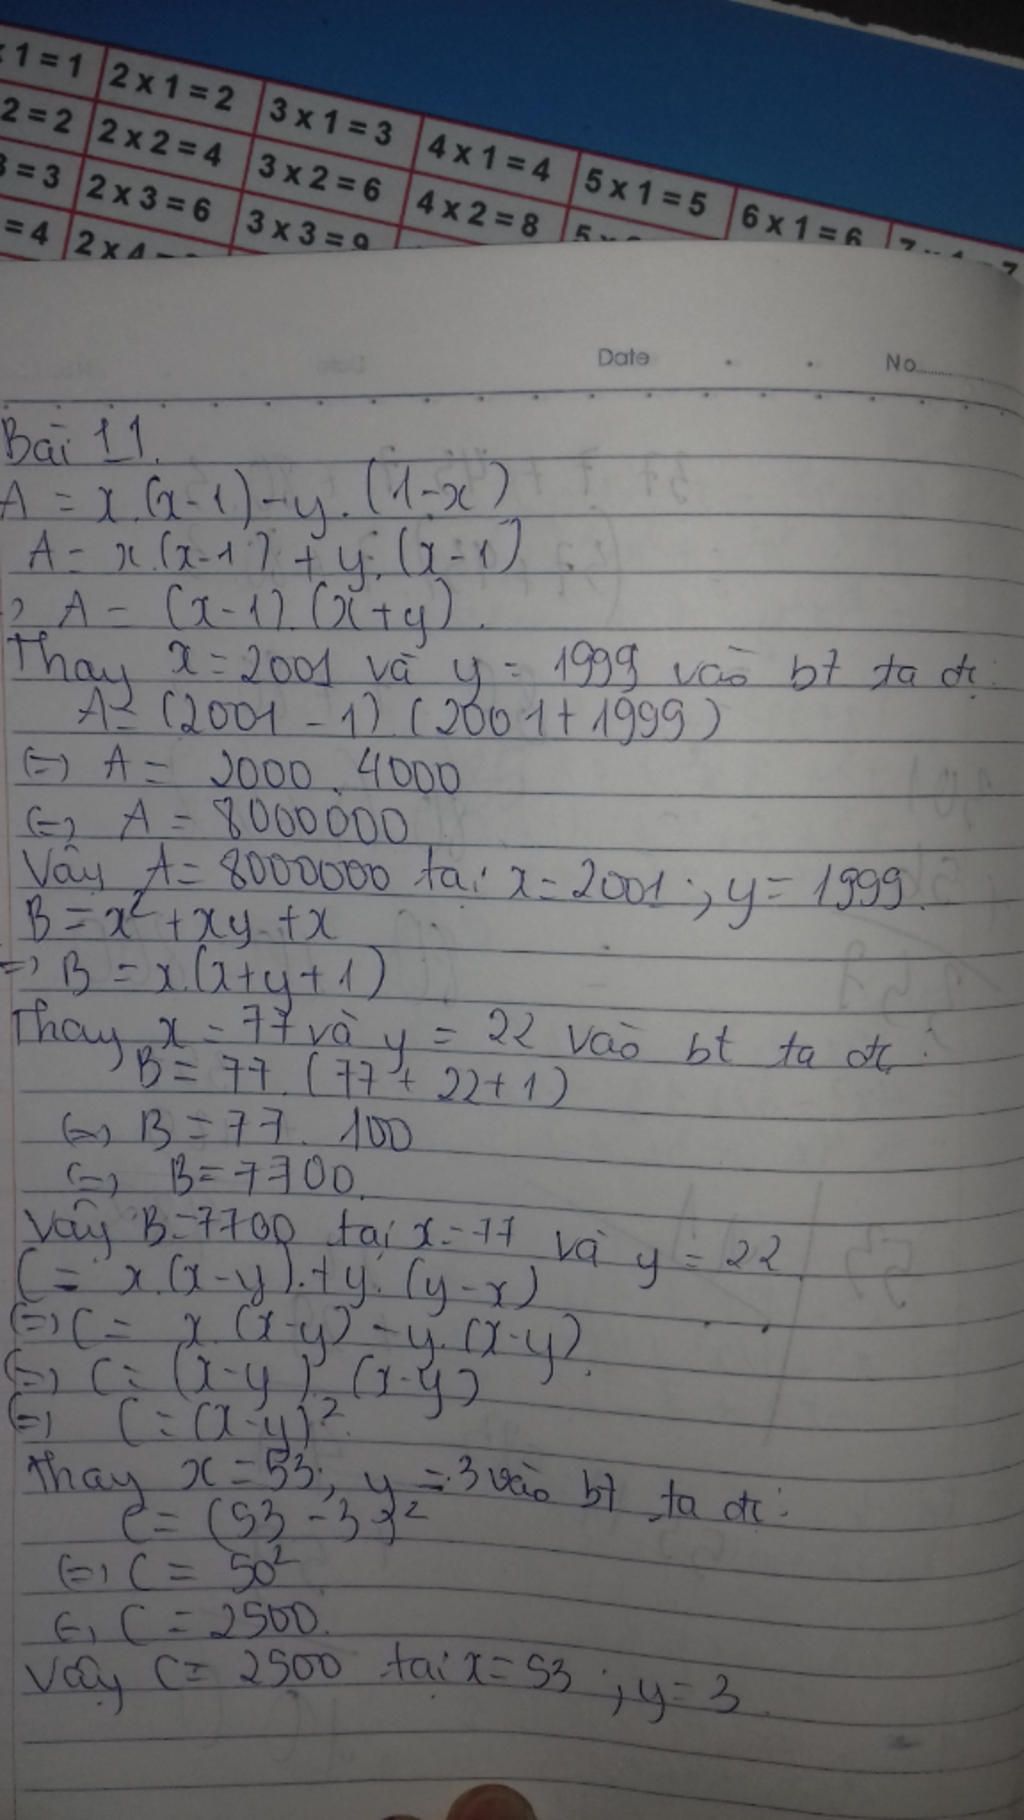 1 = 1 2 x 1 = 2 3 x 1 = 3 4 x 1 = 4 5 x 1 = 5 6 x 1 = 6
2 = 2 2 x 2 = 4 3 x 2 = 6 4 x 2 = 8
3 = 3 2 x 3 = 6 3 x 3 = 9
= 4 2 x 4
Date No
Bài 11.
A = x.(x-1)-y.(1-x)
A = x.(x-1)+y.(x-1).
A = (x-1).(x+y).
Thay x=2001 và y= 1999 vào bt ta đc:
A= (2001-1).(2001+1999)
(=) A = 2000.4000
(=) A = 8000000
Vậy A= 8000000 tại x=2001; y= 1999.
B = x²+xy+x
=) B = x.(x+y+1)
Thay x = 77 và y = 22 vào bt ta đc:
B = 77.(77+22+1)
(=) B = 77.100
(=) B = 7700.
Vậy B=7700 tại x=77 và y = 22.
C= x.(x-y)+y.(y-x)
(=) C= x.(x-y)-y.(x-y).
(=) C= (x-y).(x-y)
(=) C=(x-y)².
Thay x=53; y=3 vào bt ta đc:
C= (53-3)²
(=) C = 50²
(=) C = 2500.
Vậy C= 2500 tại x=53; y=3.